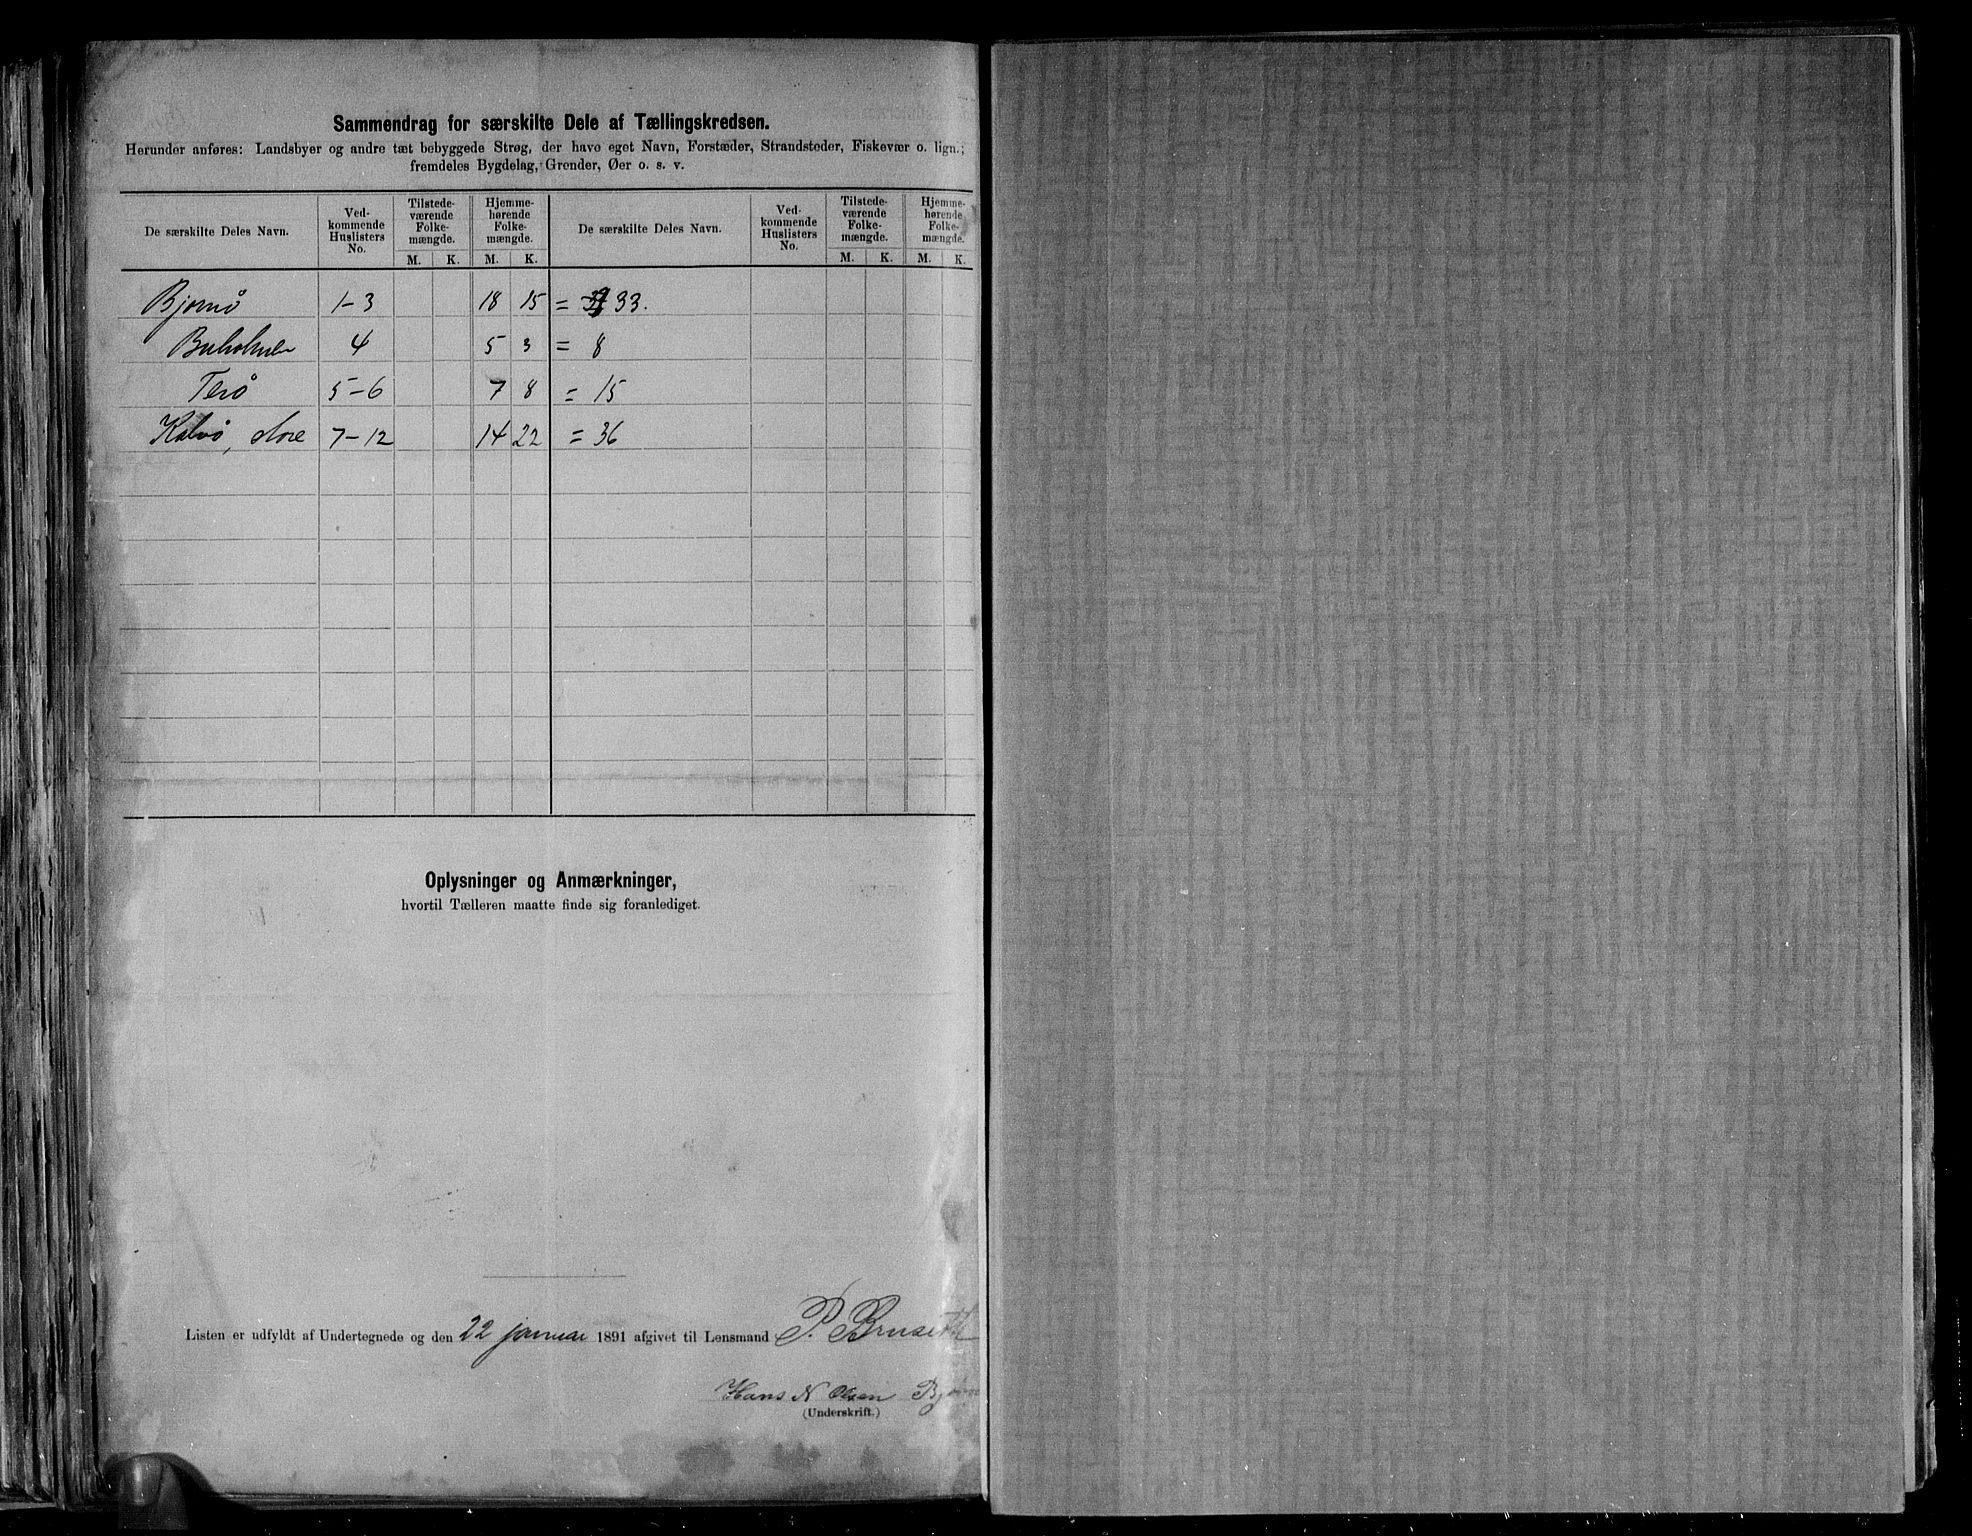 Sammendrag for særskilte Dele af Tællingskredsen.
Herunder anføres: Landsbyer og andre tæt bebyggede Strøg, der have eget Navn, Forstæder, Strandsteder, Fiskevær o. lign.;
fremdeles Bygdelag, Grender, Øer o. s. v.
De særskilte Deles Navn. Ved-kommende Huslisters No. Tilstede-værende Folke-mængde. Hjemme-hørende Folke-mængde. De særskilte Deles Navn. Ved-kommende Huslisters No. Tilstede-værende Folke-mængde. Hjemme-hørende Folke-mængde.
M. K. M. K. M. K. M. K.
Bjørnø 1-3 18 15 = 33.
Buholmen 4 5 3 = 8
Terø 5-6 7 8 = 15
Kalvø, store 7-12 14 22 = 36
Oplysninger og Anmærkninger,
hvortil Tælleren maatte finde sig foranlediget.
Listen er udfyldt af Undertegnede og den 22 januar 1891 afgivet til Lensmand P. Bruseth
Hans N Olsen
(Underskrift.)